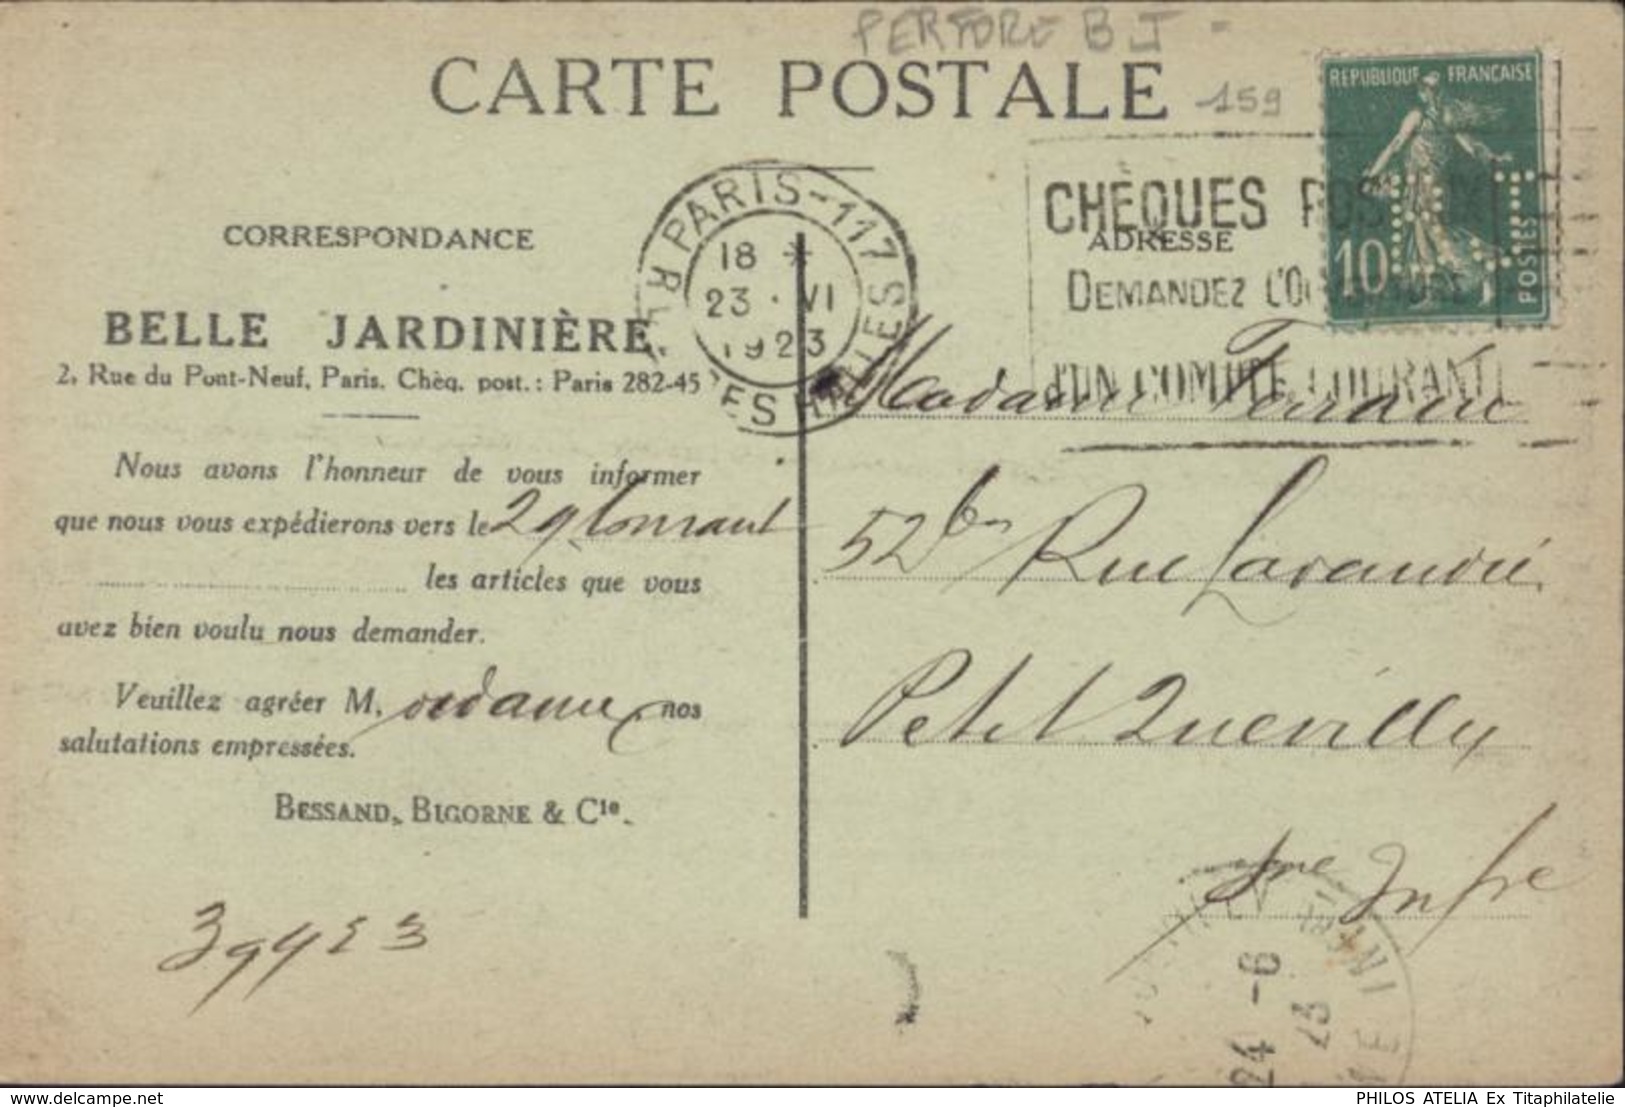 PERFORE B J -
CARTE POSTALE
159
REPUBLIQUE FRANÇAISE
10
POSTES
PARIS-117
18 *
23 · VI
1923
R
DES HALLES
CHÈQUES POS
DEMANDEZ L'O
D'UN COMPTE COURANT
CORRESPONDANCE
ADRESSE
BELLE JARDINIÈRE.
2, Rue du Pont-Neuf, Paris. Chèq. post. : Paris 282-45
Nous avons l'honneur de vous informer
que nous vous expédierons vers le 29 Courant
les articles que vous
avez bien voulu nous demander.
Veuillez agréer M, adame, nos
salutations empressées.
BESSAND, BIGORNE & Cie.
Madame
52 bis Rue
Petit Quevilly
Sne Infre
24 -6
23
E INFRE
PHILOS ATELIA Ex Titaphilatelie
www.delcampe.net